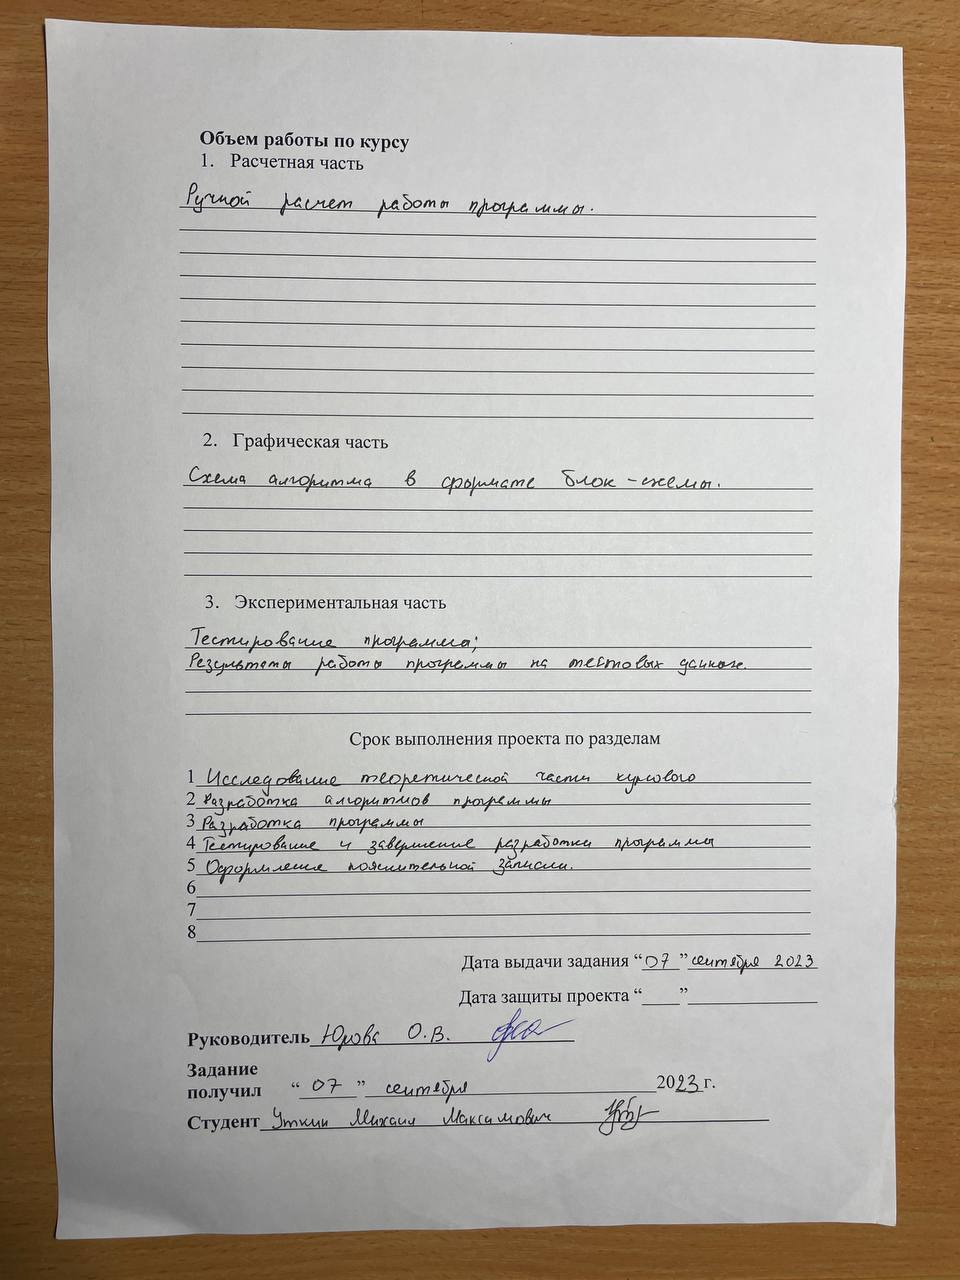 Объем работы по курсу
1. Расчетная часть
Ручной расчет работы программы.
2. Графическая часть
Схема алгоритма в формате блок-схемы.
3. Экспериментальная часть
Тестирование программы;
Результаты работы программы на тестовых данных.
Срок выполнения проекта по разделам
1 Исследование теоретической части курсового
2 Разработка алгоритмов программы
3 Разработка программы
4 Тестирование и завершение разработки программы
5 Оформление пояснительной записки.
6
7
8
Дата выдачи задания “07” сентября 2023
Дата защиты проекта “___”
Руководитель Юрова О.В.
Задание
получил “07” сентября 2023 г.
Студент Уткин Михаил Максимович